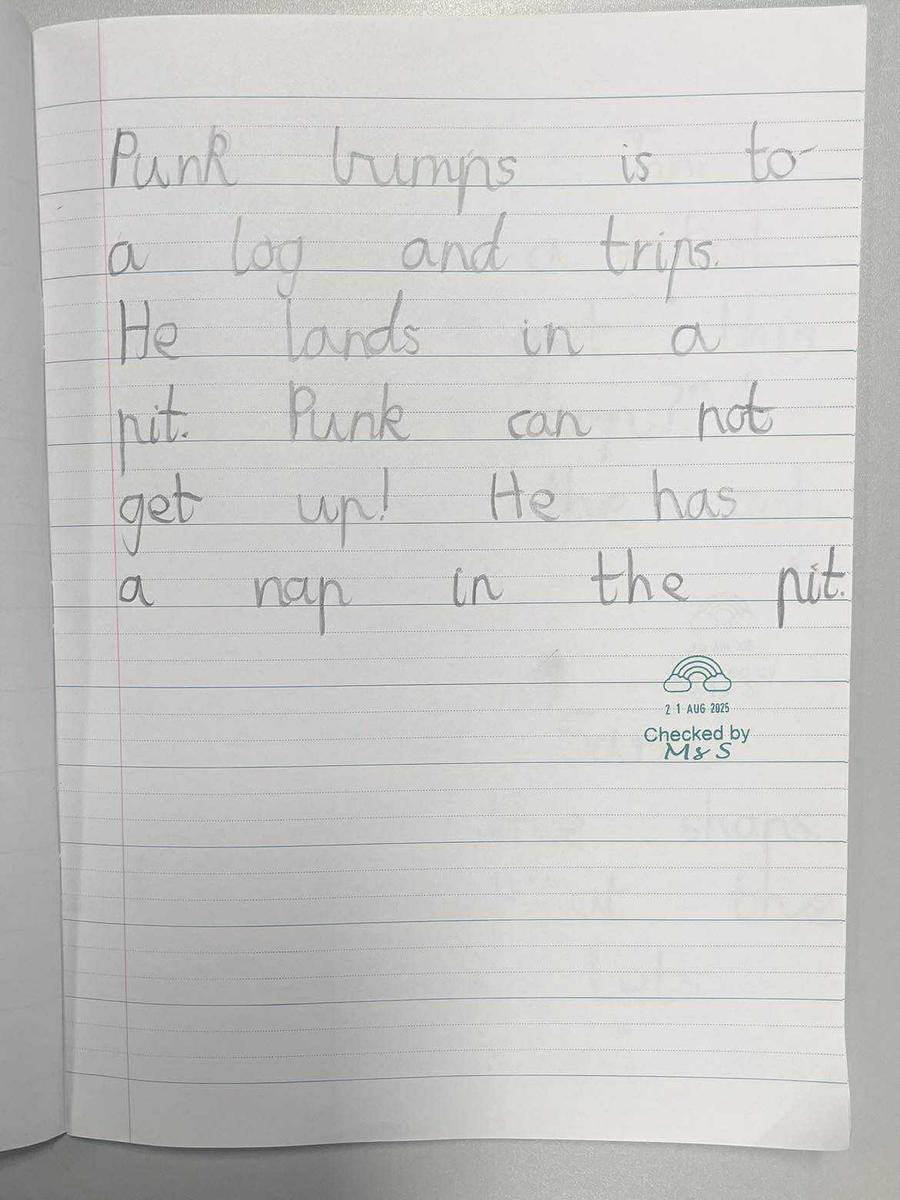 Punk bumps is to
a log and trips.
He lands in a
pit. Punk can not
get up! He has
a nap in the pit.
21 AUG 2025
Checked by
Ms S